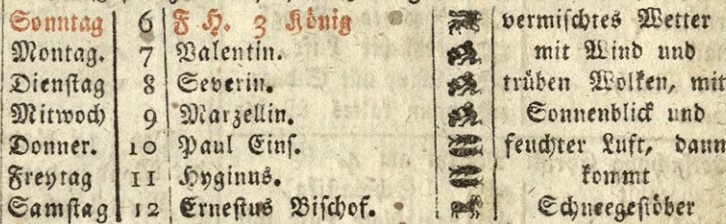 Sonntag 6 F H. 3 König vermischtes Wetter
Montag. 7 Valentin. mit Wind und
Dienstag 8 Severin. trüben Wolken, mit
Mitwoch 9 Marzellin. Sonnenblick und
Donner. 10 Paul Eins. feuchter Luft, dann
Freytag 11 Hyginus. kommt
Samstag 12 Ernestus Bischof. Schneegestöber